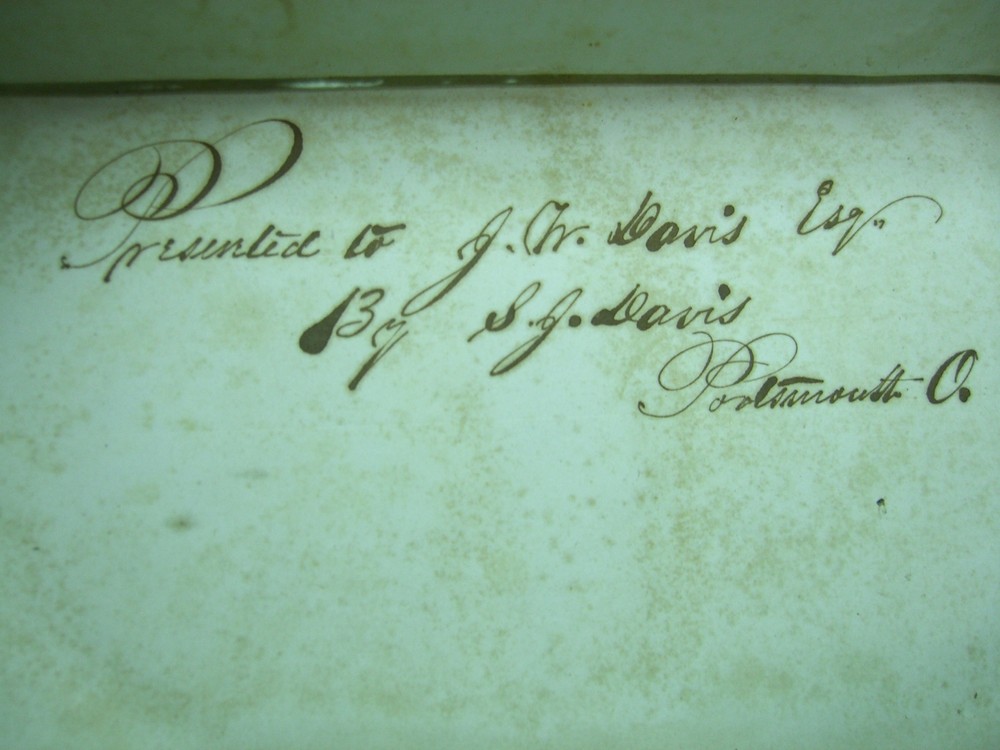 Presented to J. W. Davis Esq.
By S. J. Davis
Portsmouth O.